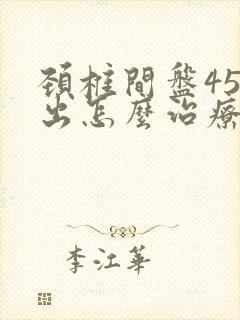 頚柱間盤45
出怎麼治療
李江華